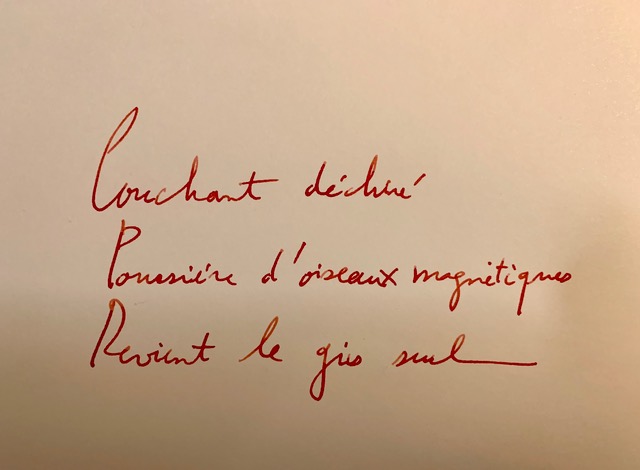 Couchant déchiré
Poussière d'oiseaux magnétiques
Revient le gris seul